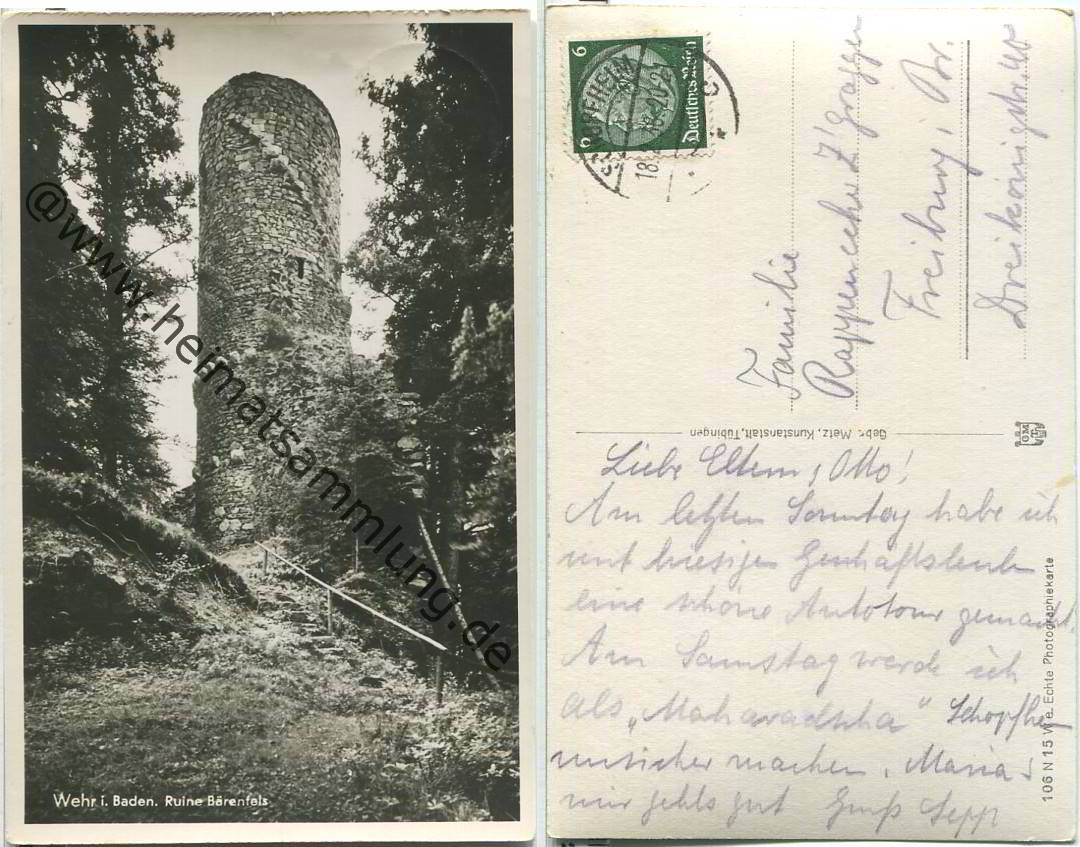 Wehr i. Baden. Ruine Bärenfels
@www.heimatsammlung.de
6 6
Deutsches Reich
18.
Familie
Rappenecker Z'Graggen
Freiburg i Br.
Dreikönigstr. 40
Gebr. Metz, Kunstanstalt, Tübingen
GMT
Liebe Eltern, Otto!
Am letzten Sonntag habe ich
mit hiesigen Geschäftsleuten
eine schöne Autotour gemacht.
Am Samstag werde ich
als „Maharadscha" Schopfheim
unsicher machen. Maria u
mir gehts gut Gruß Sepp
106 N 15 W e. Echte Photographiekarte